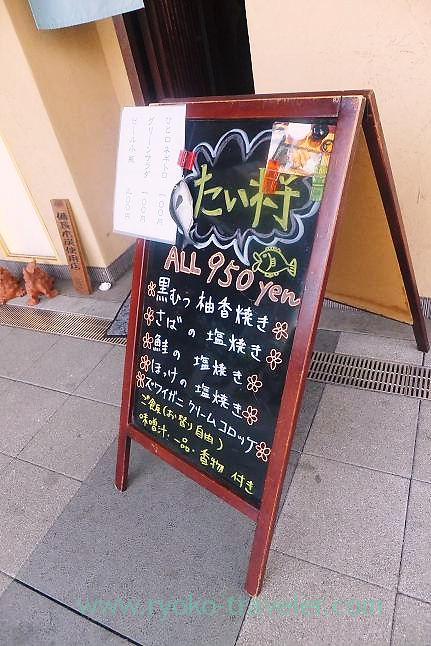 ひと口ネギトロ 一〇〇円
グリーンサラダ 一〇〇円
ビール小瓶 三〇〇円
たい将
ALL 950yen
黒むつ 柚香焼き
さばの 塩焼き
鮭の 塩焼き
ほっけの 塩焼き
ズワイガニ クリームコロッケ
ご飯(お替り自由)
味噌汁・一品・香物 付き
備長炭使用店
www.ryoko-traveler.com